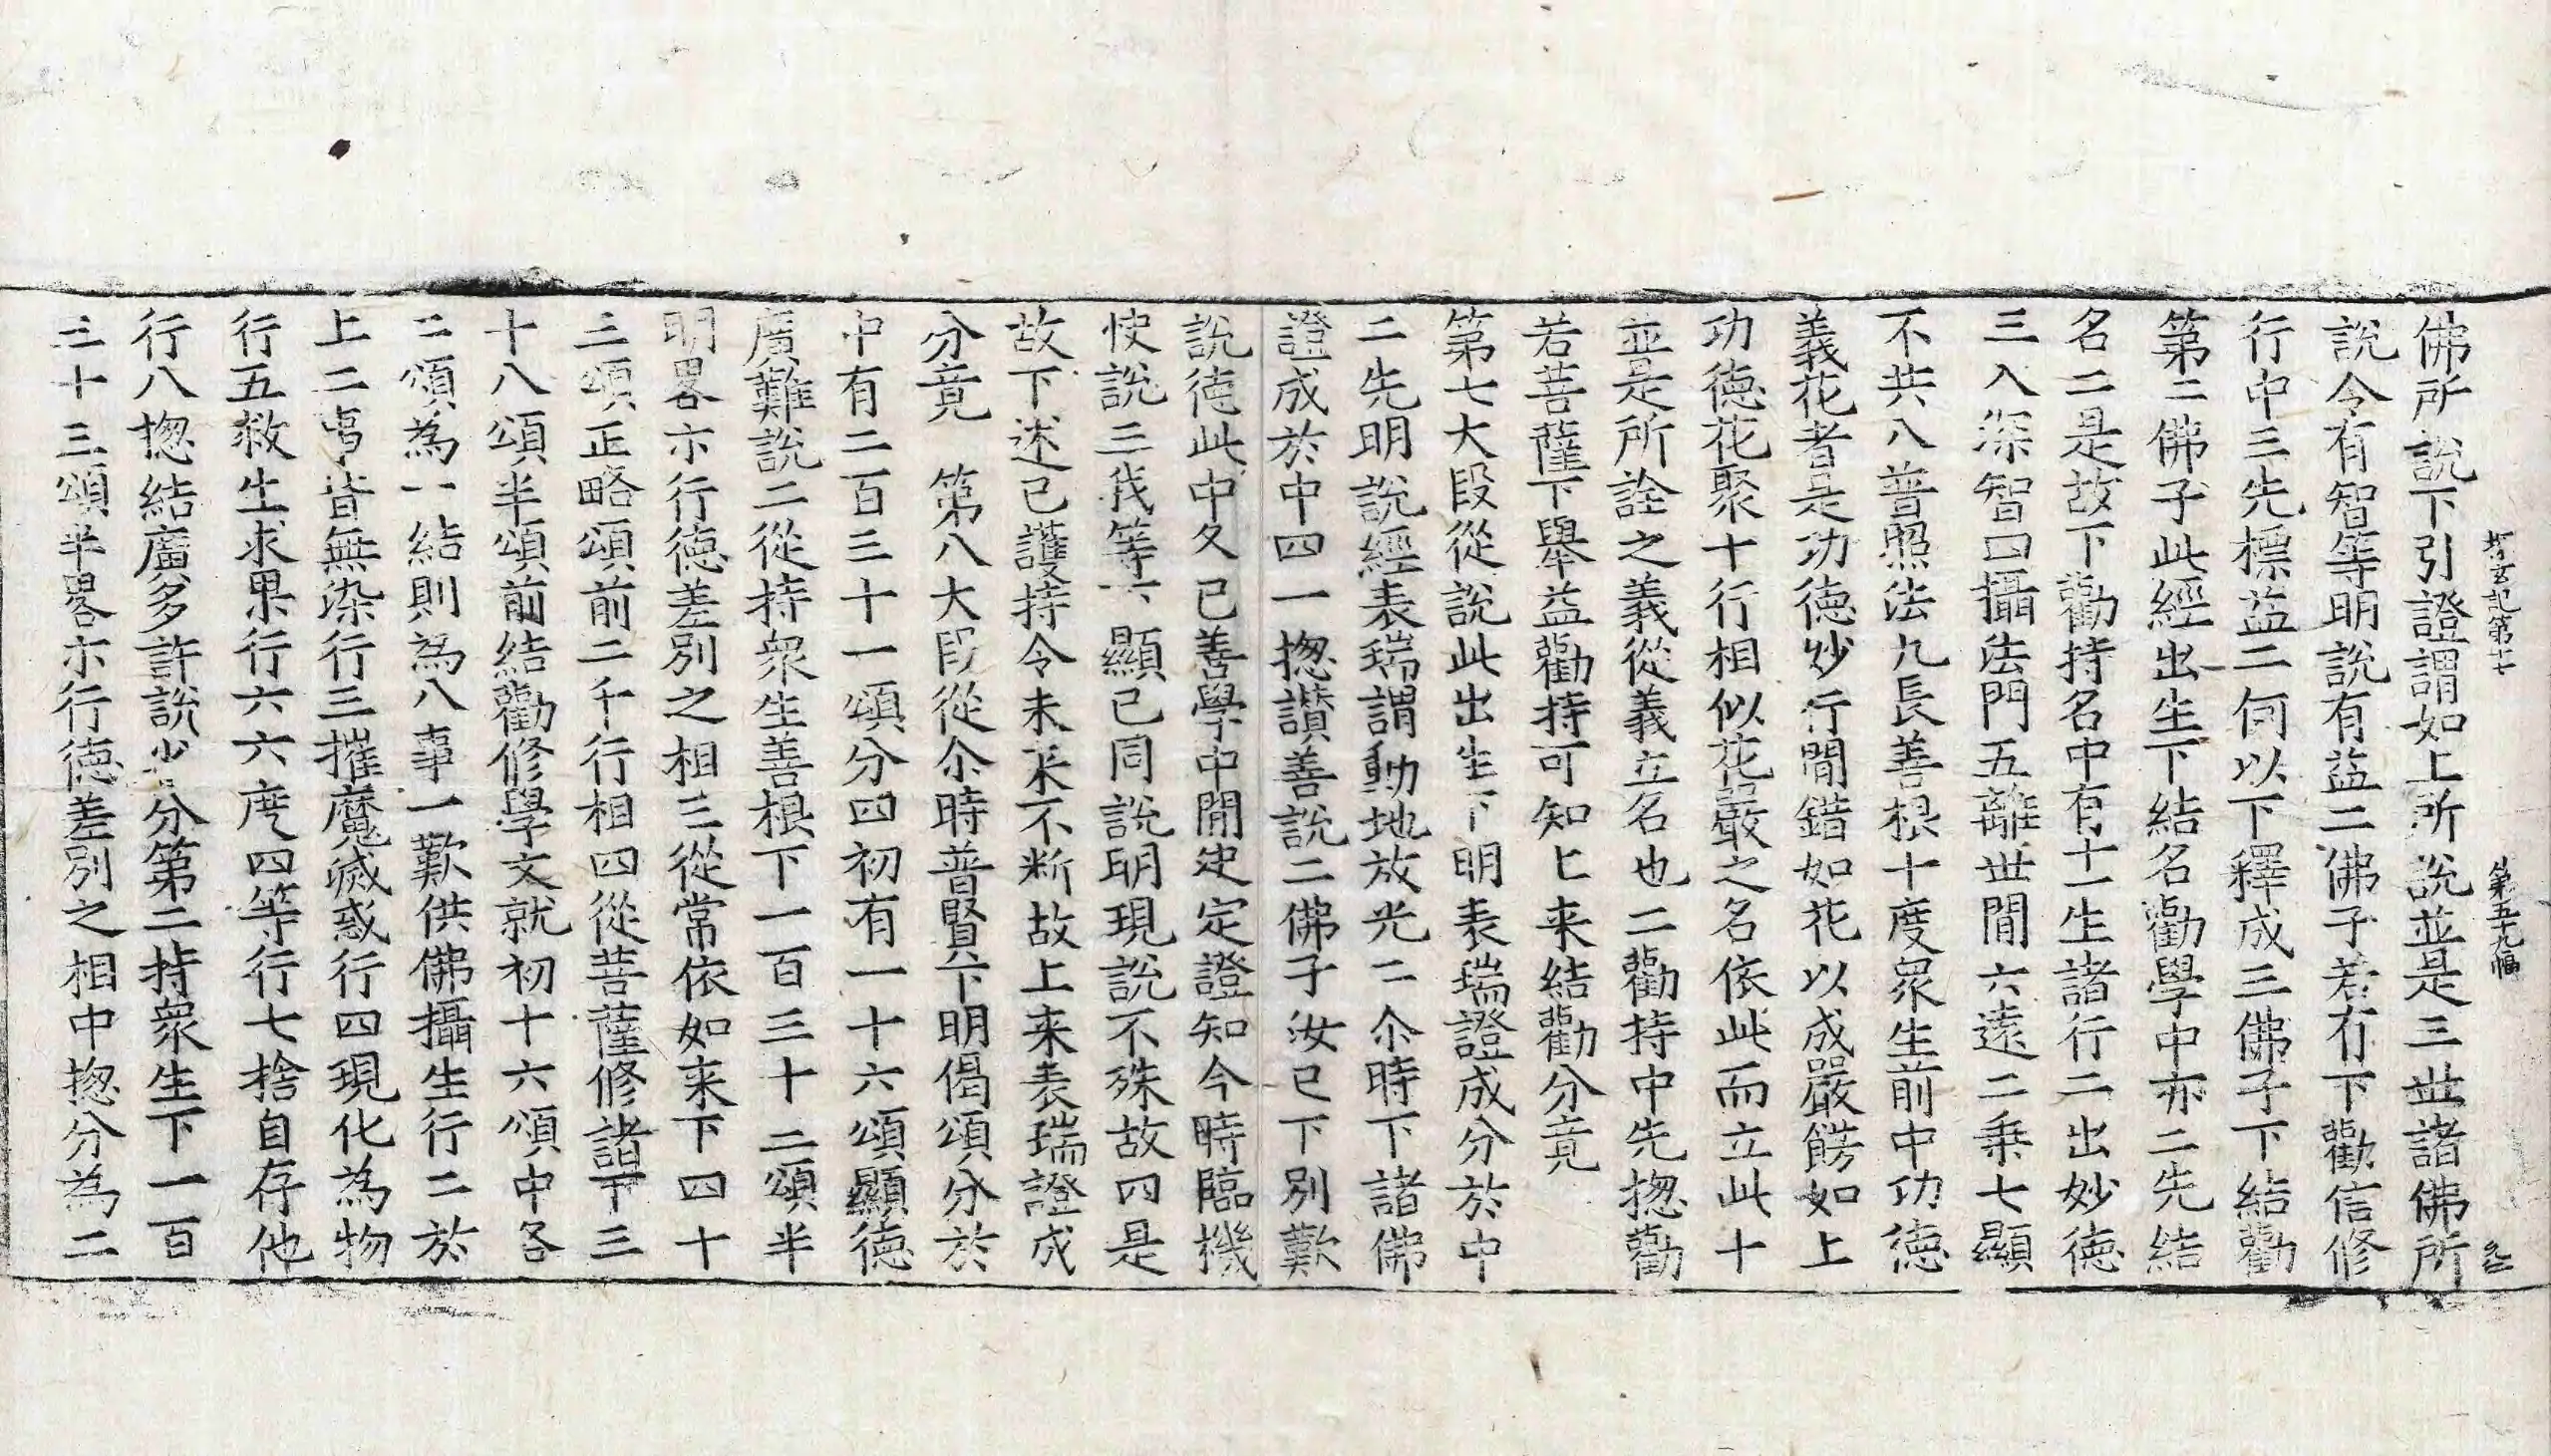 探玄記第十七 第五十九幅
佛所說下引證謂如上所說並是三世諸佛所
說今有智等明說有益二佛子若有下勸信修
行中三先標益二何以下釋成三佛子下結勸
第二佛子此經出生下結名勸學中亦二先結
名二是故下勸持名中有十一生諸行二出妙德
三入深智四攝法門五離世間六遠二乗七顯
不共八普照法九長善根十度衆生前中功德
義花者是功德妙行間錯如花以成嚴餝如上
功德花聚十行相似花嚴之名依此而立此十
並是所詮之義從義立名也二勸持中先揔勸
若菩薩下舉益勸持可知上来結勸分竟
第七大段從說此出生下明表瑞證成分於中
二先明說經表瑞謂動地放光二尒時下諸佛
證成於中四一揔讃善說二佛子汝已下別歎
說德此中久已善學中閒定定證知今時臨機
使說三我等下顯已同說明現說不殊故四是
故下述已護持令未来不断故上来表瑞證成
分竟 第八大段從尒時普賢下明偈頌分於
中有二百三十一頌分四初有一十六頌顯德
廣難說二從持衆生善根下一百三十二頌半
明畧示行德差別之相三從常依如来下四十
三頌正略頌前二千行相四從菩薩修諸下三
十八頌半頌前結勸修學文就初十六頌中各
二頌為一結則為八事一歎供佛攝生行二於
上二事皆無染行三摧魔滅惑行四現化為物
行五救生求果行六六度四等行七捨自存他
行八揔結廣多許說少分第二持衆生下一百
三十三頌半畧示行德差別之相中揔分為二